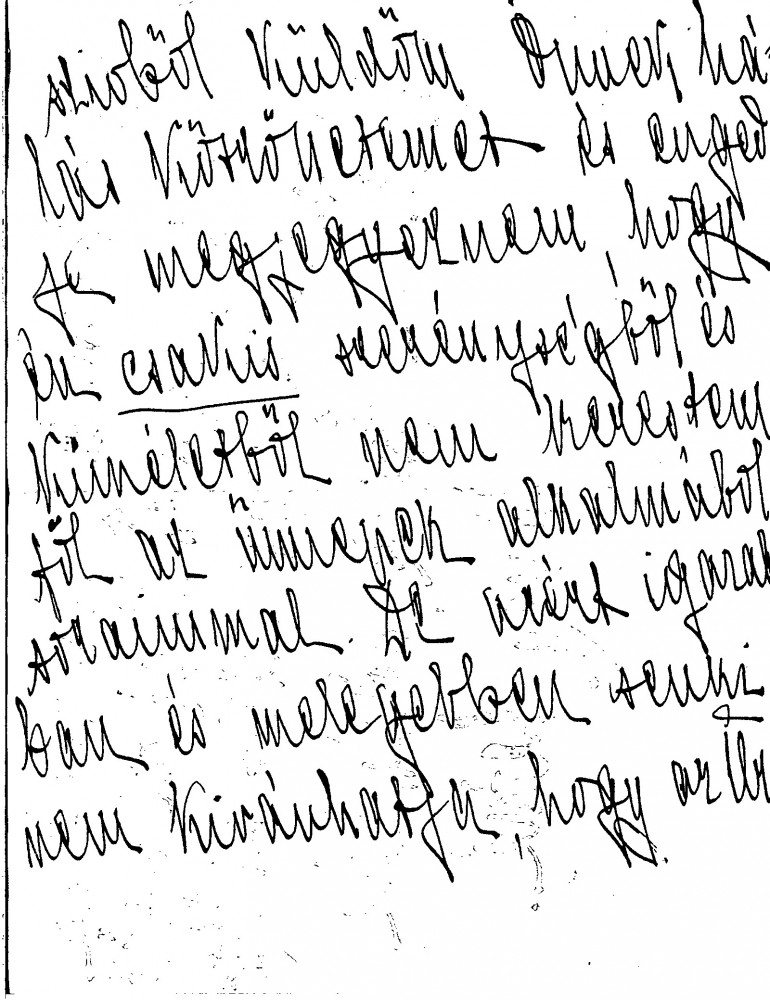 szivből küldöm Önnek há-
lás köszönetemet és enged
je megjegyeznem, hogy
én csakis szerénységből és
kíméletből nem kerestem
föl az ünnepek alkalmából
soraimmal. De azért igazab
ban és melegebben senki
nem kivánhatja, hogy az Úr